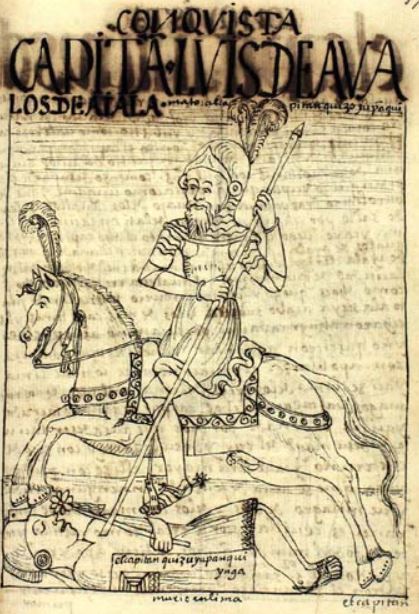 CONQVISTA
CAPITĀ·LVIS DE AVA
LOS DE AIALA·mato al ca pitan quizo yupāqui
el capitan quizo yupanqui
ynga
murio en lima
el capitan